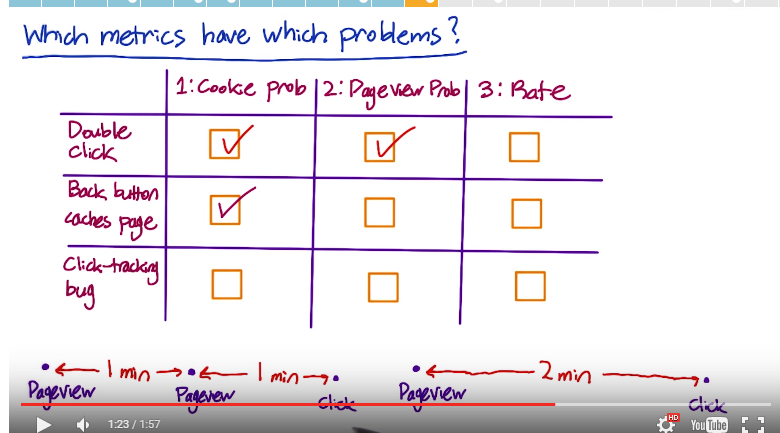 Which metrics have which problems?
1: Cookie prob 2: Pageview Prob 3: Rate
Double
click
Back button
caches page
Click-tracking
bug
1 min 1 min 2 min
Pageview Pageview Click Pageview Click
1:23 / 1:57 HD YouTube